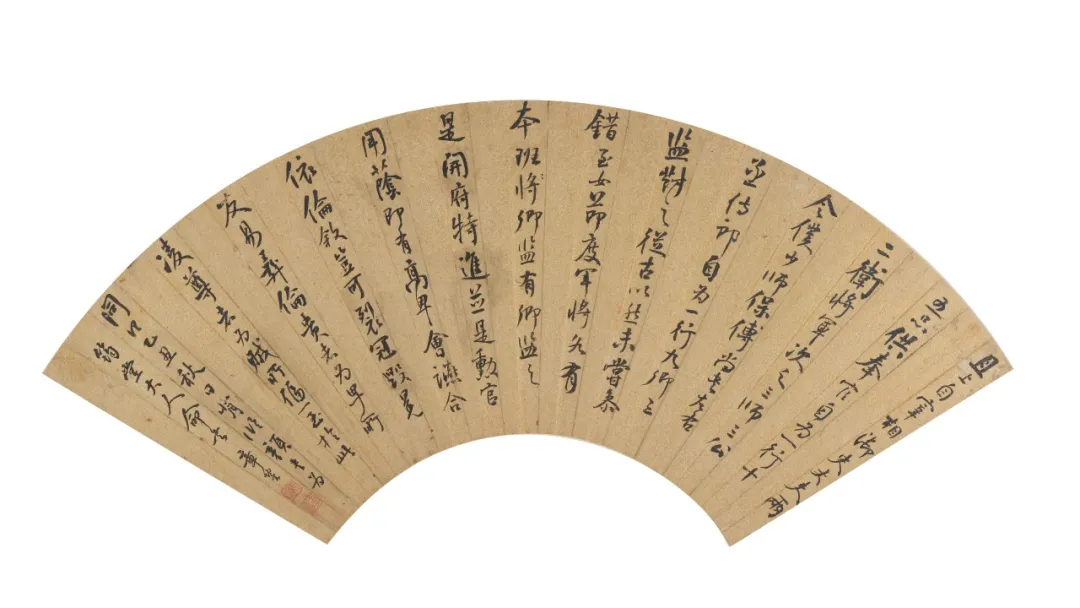 且上自宰相御史大夫兩
五品供奉官自為一行十
二衛將軍次之三師三公
令僕少師保傅尚書左右
丞侍郎自為一行九卿三
監對之從古以然未嘗參
錯至如節度軍將各有
本班將卿監有卿監之
是開府特進並是勳官
用蔭即有高卑會讌合
依倫敘豈可裂冠毀冕
反易彝倫貴者為卑所
凌尊者為賊所偪一至於此
己丑秋日臨顏書為
堂大人命書